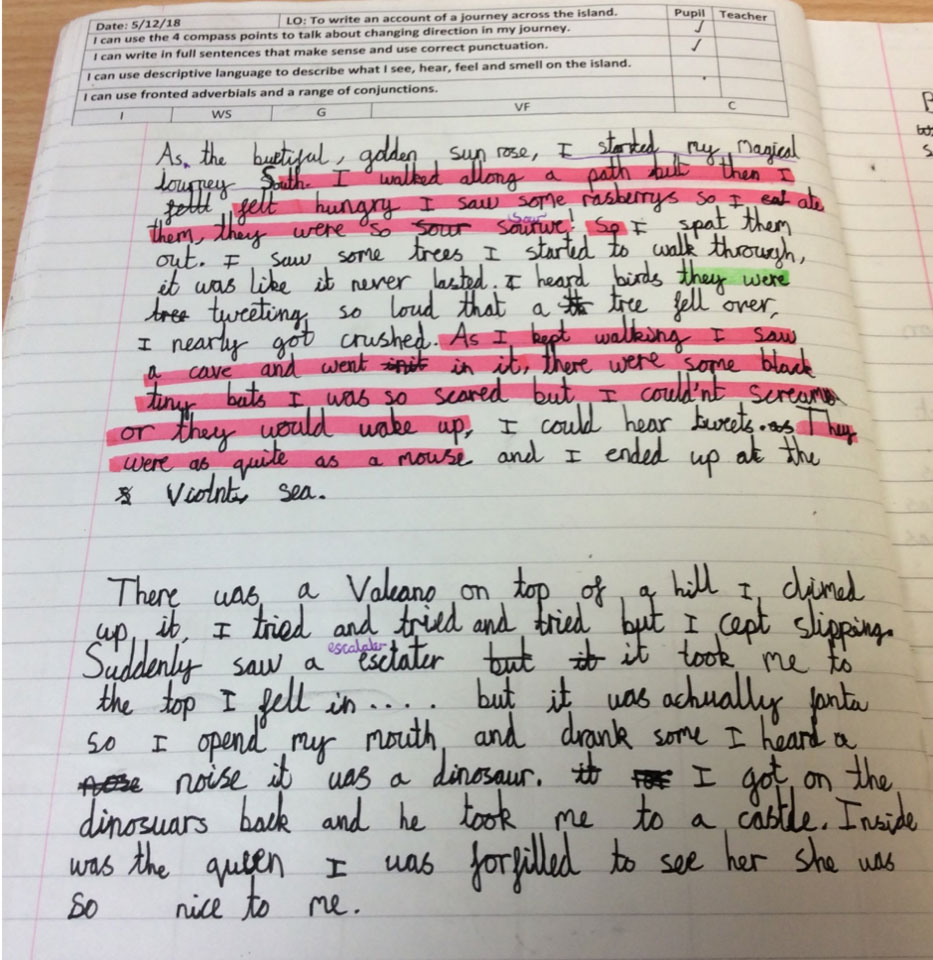 Date: 5/12/18 LO: To write an account of a journey across the island. Pupil Teacher
I can use the 4 compass points to talk about changing direction in my journey.
I can write in full sentences that make sense and use correct punctuation.
I can use descriptive language to describe what I see, hear, feel and smell on the island.
I can use fronted adverbials and a range of conjunctions.
I WS G VF C
As, the buetiful, golden sun rose, I started my magical
Journey South. I walked allong a path but then I
felt hungry I saw some rasberrys so I eat ate
sour
them, they were so sour sourwe! So I spat them
out. I saw some trees I started to walk through,
it was like it never lasted. I heard birds they were
tree tweeting so loud that a tree fell over,
I nearly got crushed. As I kept walking I saw
a cave and went init in it, there were some black
tiny bats I was so scared but I could'nt scream
or they would wake up, I could hear tweets. as They
were as quite as a mouse and I ended up at the
Violnt, sea.
There was a Valcano on top of a hill I climed
up it, I tried and tried and tried but I cept slipping.
escalater
Suddenly saw a esclater but it it took me to
the top I fell in.... but it was achually fanta
so I opend my mouth and drank some I heard a
nose noise it was a dinosaur. it I got on the
dinosuars back and he took me to a castle. Inside
was the queen I was forfilled to see her she was
so nice to me.